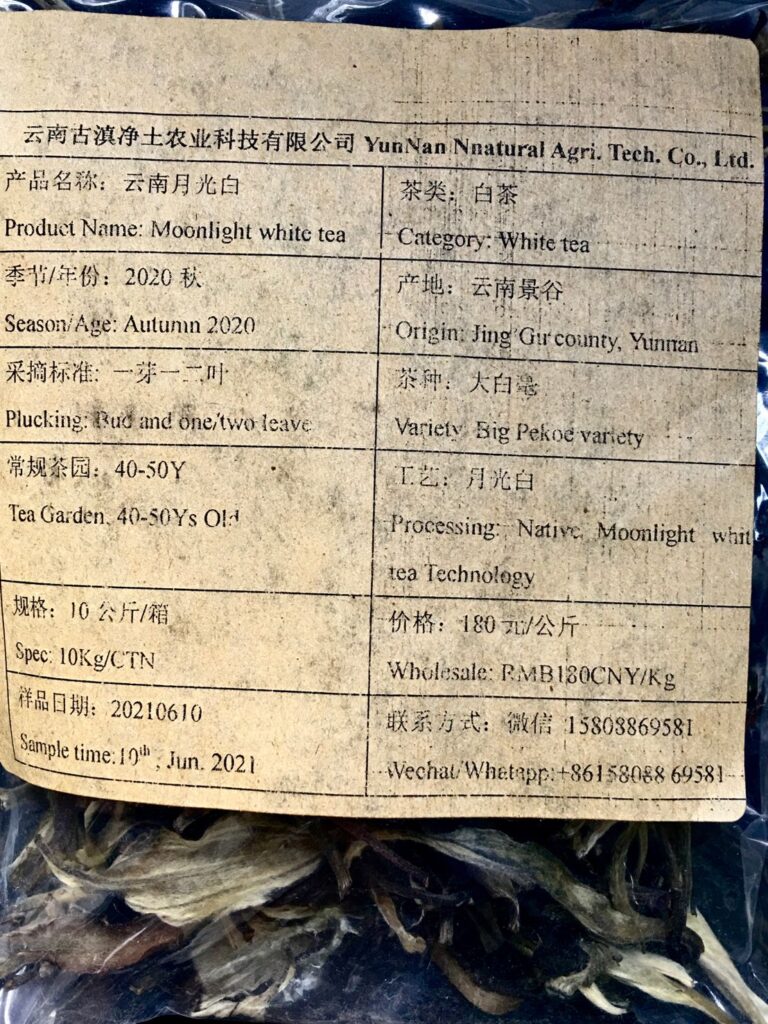 云南古滇净土农业科技有限公司 YunNan Nnatural Agri. Tech. Co., Ltd.
产品名称：云南月光白
Product Name: Moonlight white tea
茶类：白茶
Category: White tea
季节/年份：2020 秋
Season/Age: Autumn 2020
产地：云南景谷
Origin: Jing Gu county, Yunnan
采摘标准：一芽一二叶
Plucking: Bud and one/two leave
茶种：大白毫
Variety: Big Pekoe variety
常规茶园：40-50Y
Tea Garden: 40-50Ys Old
工艺：月光白
Processing: Native Moonlight whit
tea Technology
规格：10 公斤/箱
Spec: 10Kg/CTN
价格：180 元/公斤
Wholesale: RMB180CNY/Kg
样品日期：20210610
Sample time:10th , Jun. 2021
联系方式：微信 15808869581
Wechat/Whatapp:+8615808869581